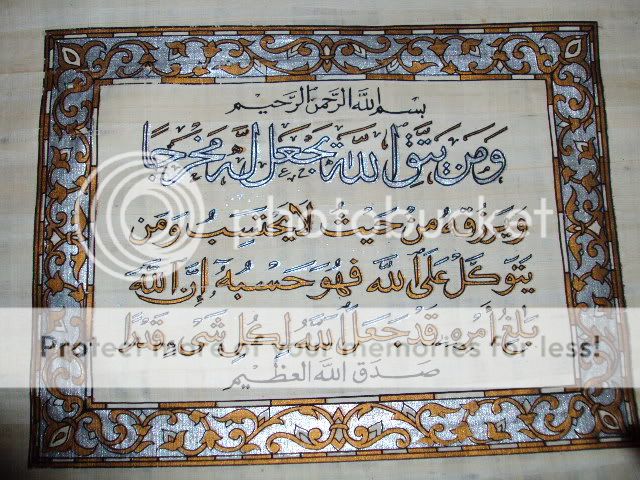 بسم الله الرحمن الرحيم
ومن يتق الله يجعل له مخرجا
ويرزقه من حيث لا يحتسب ومن
يتوكل على الله فهو حسبه إن الله
بالغ أمره قد جعل الله لكل شيء قدرا
صدق الله العظيم
photobucket
Protect more of your memories for less!